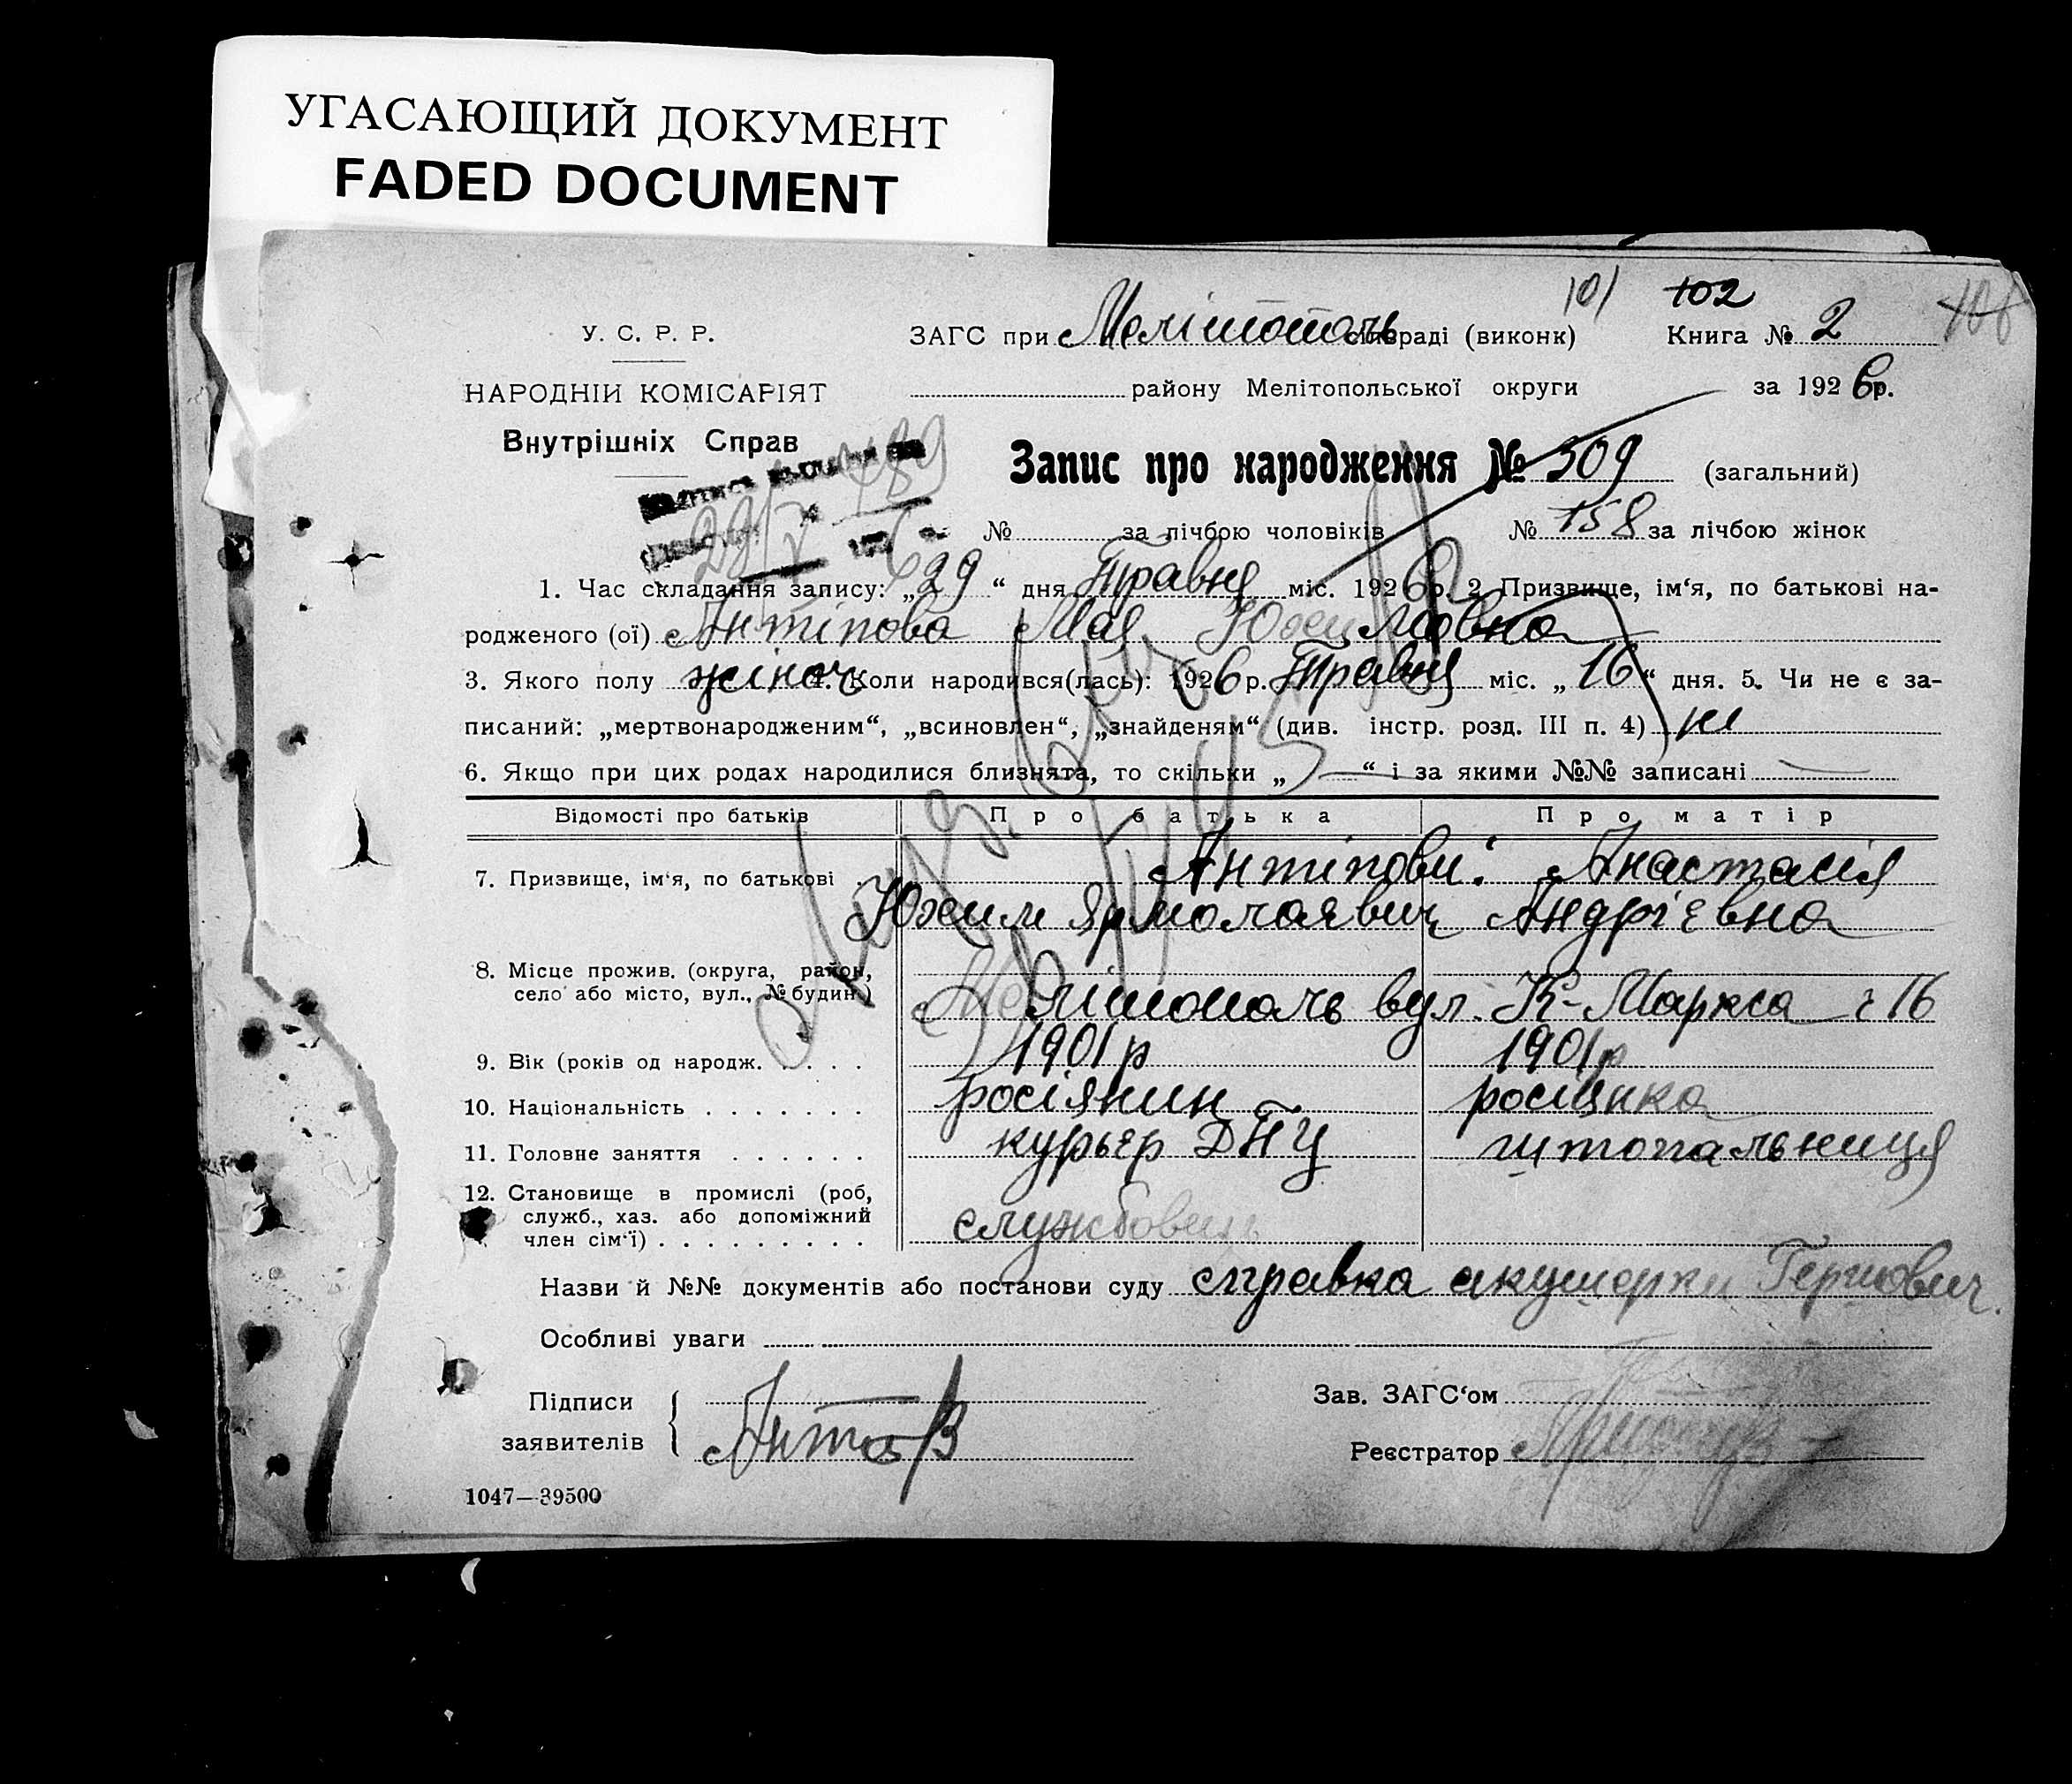 УГАСАЮЩИЙ ДОКУМЕНТ
FADED DOCUMENT
101 102
У. С. Р. Р. ЗАГС при Мелітополь раді (виконк) Книга № 2
НАРОДНІЙ КОМІСАРІЯТ району Мелітопольської округи за 1926 р.
Внутрішніх Справ
Запис про народження № 509 (загальний)
№ за лічбою чоловіків № 158 за лічбою жінок
1. Час складання запису: „29“ дня Травня міс. 1926 р. 2 Призвище, ім‘я, по батькові на-
родженого (ої) Антіпова Мая Юхимовна
3. Якого полу жіноч 4. Коли народився(лась): 1926 р. Травня міс. „16“ дня. 5. Чи не є за-
писаний: „мертвонародженим“, „всиновлен“, „знайденям“ (див. інстр. розд. III п. 4) ні
6. Якщо при цих родах народилися близнята, то скільки „—“ і за якими №№ записані —
Відомості про батьків Про батька Про матір
7. Призвище, ім‘я, по батькові Антіпови: Анастасія
Юхим Ярмолаявич Андріевна
8. Місце прожив. (округа, район,
село або місто, вул., № будин.) Мелітополь вул. К-Маркса 16
9. Вік (років од народж. . . . . 1901 р 1901 р
10. Національність . . . . . . . росіянин росіянка
11. Головне заняття . . . . . . курьер ДПУ штопальниця
12. Становище в промислі (роб,
служб., хаз. або допоміжний
член сім‘ї) . . . . . . . . . службовець
Назви й №№ документів або постанови суду справка акушерки
Особливі уваги
Підписи
заявителів
Зав. ЗАГС‘ом
Реєстратор
1047—39500